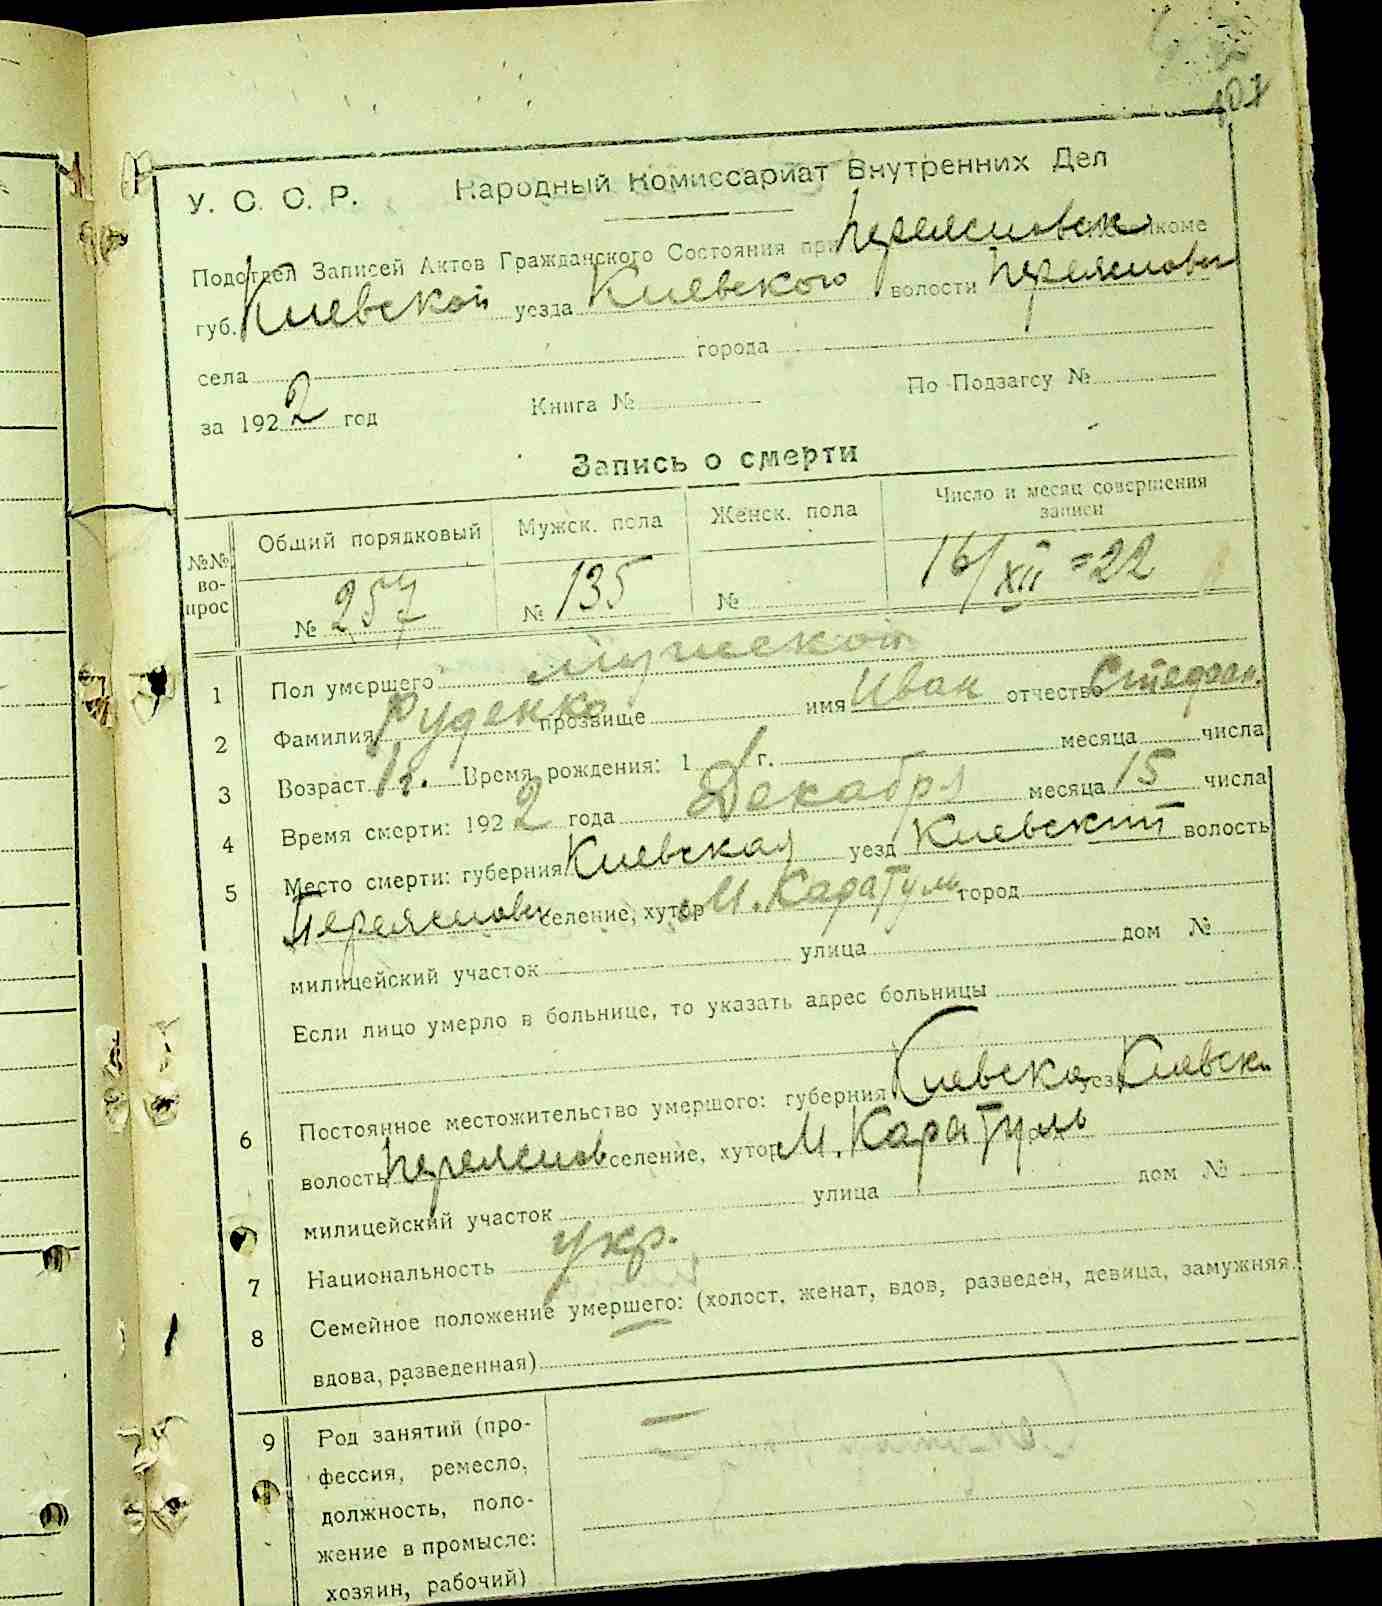 107
У. С. С. Р. Народный Комиссариат Внутренних Дел
Подотдел Записей Актов Гражданского Состояния при Переяславск икоме
губ. Киевской уезда Киевского волости Переяславск
села города
за 1922 год Книга № По Подзагсу №
Запись о смерти
№№ во- прос Общий порядковый Мужск. пола Женск. пола Число и месяц совершения записи
№ 257 № 135 № 16/XII=22
1 Пол умершего мужской
2 Фамилия Руденко прозвище имя Иван отчество Стефан.
3 Возраст 1 г. Время рождения: 1 г. месяца числа
4 Время смерти: 1922 года Декабря месяца 15 числа
5 Место смерти: губерния Киевская уезд Киевский волость
Переяславск селение, хутор М. Каратуль город
милицейский участок улица дом №
Если лицо умерло в больнице, то указать адрес больницы
6 Постоянное местожительство умершого: губерния Киевска уезд Киевск
волость Переяслов селение, хутор М. Каратуль
милицейский участок улица дом №
7 Национальность укр.
8 Семейное положение умершего: (холост, женат, вдов, разведен, девица, замужняя,
вдова, разведенная)
9 Род занятий (про-
фессия, ремесло,
должность, поло-
жение в промысле:
хозяин, рабочий)